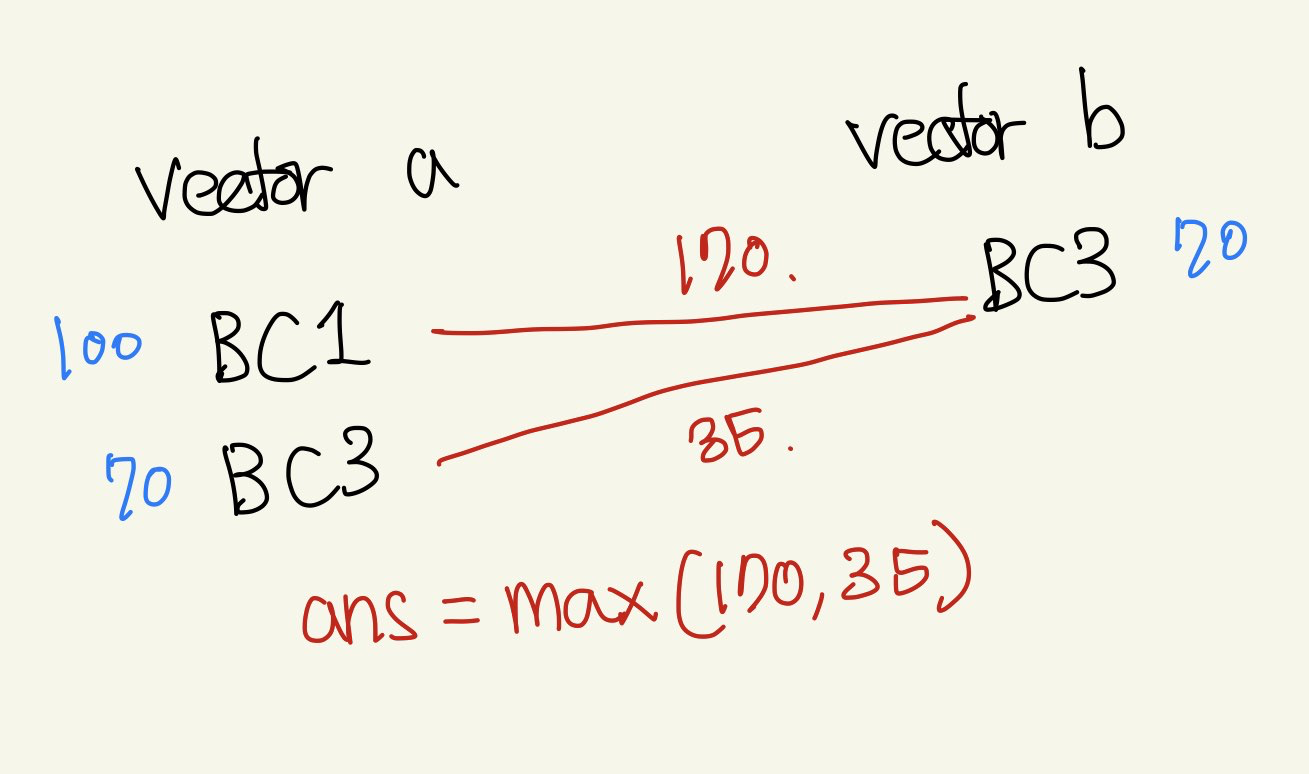 vector a
vector b
100 BC1
70 BC3
170.
35.
BC3 70
ans = max(170,35)